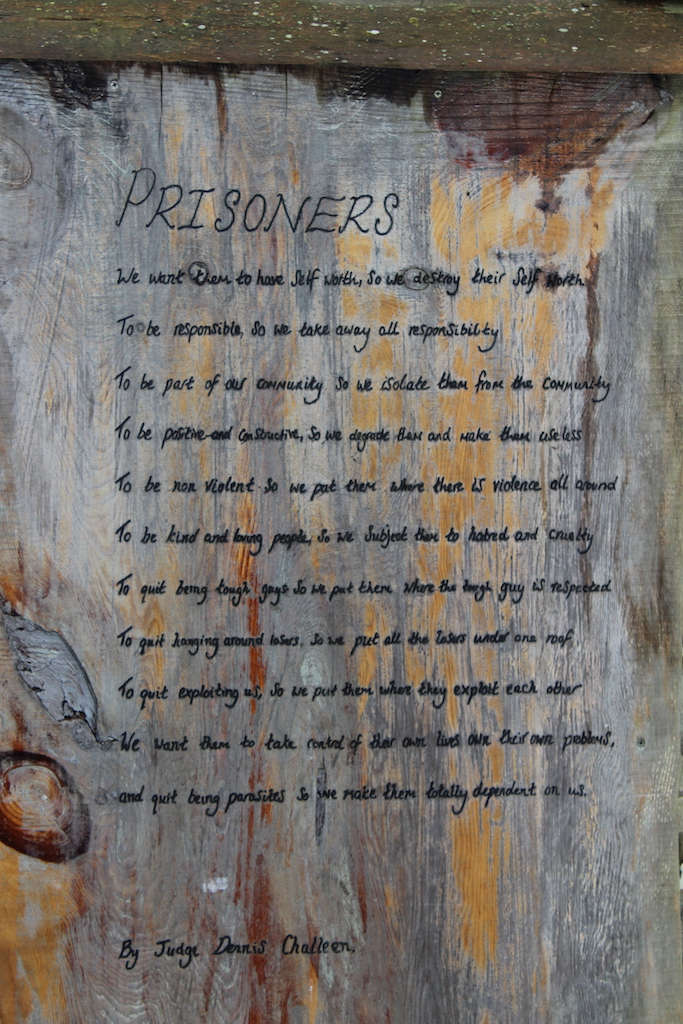 PRISONERS
We want them to have self worth, so we destroy their self worth
To be responsible, so we take away all responsibility
To be part of our community so we isolate them from the community
To be positive and constructive, so we degrade them and make them useless
To be non violent so we put them where there is violence all around
To be kind and loving people, so we subject them to hatred and cruelty
To quit being tough guys so we put them where the tough guy is respected
To quit hanging around losers. so we put all the losers under one roof
To quit exploiting us, so we put them where they exploit each other
We want them to take control of their own lives own their own problems,
and quit being parasites so we make them totally dependent on us.
By Judge Dennis Challeen.